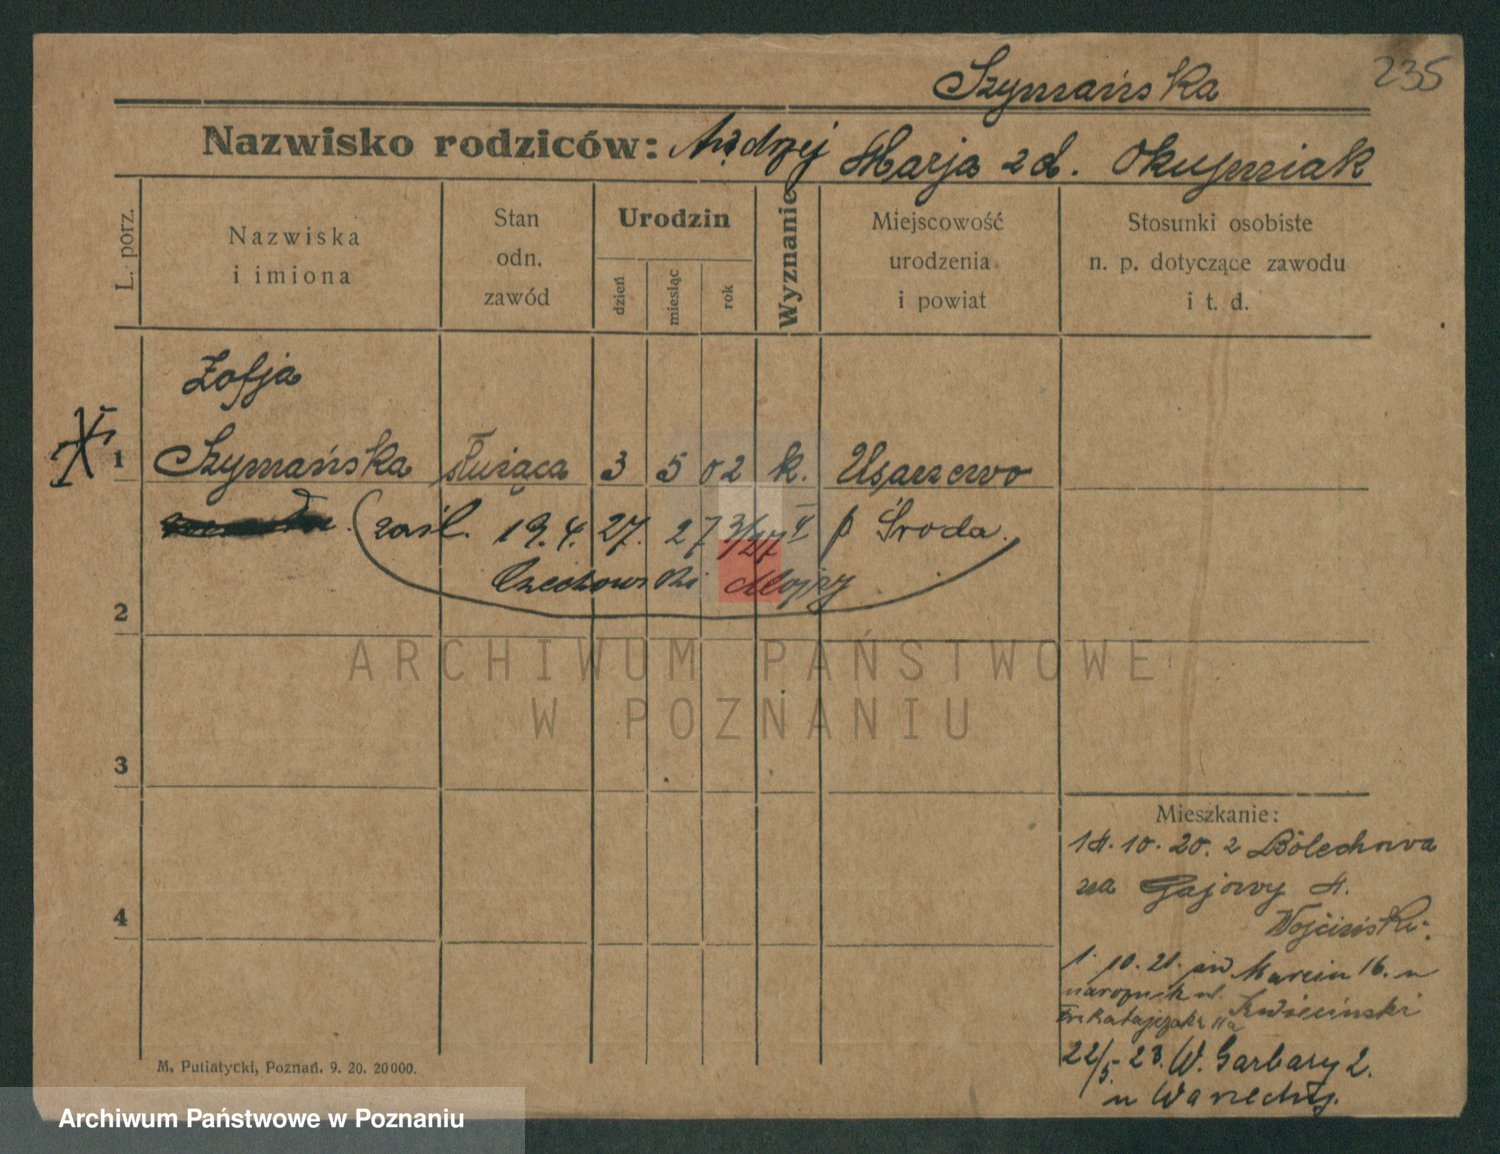 Szymańska
235
Nazwisko rodziców: Andrzej Marja zd. Okupniak
L. porz.
Nazwiska
i imiona
Stan
odn.
zawód
Urodzin
dzień
miesiąc
rok
Wyznanie
Miejscowość
urodzenia
i powiat
Stosunki osobiste
n. p. dotyczące zawodu
i t. d.
Zofja
1 Szymańska służąca 3 5 02 k. Usarzewo
zaśl. 19.4.27. 27 p Środa.
Czechowski Alojzy
2
3
4
Mieszkanie:
14.10.20. z Bolechowa
na Gajowy 4.
Wojciński.
1.10.21. św Marcin 16. u
narożnik ul. Kwieciński
Fr. Ratajczaka 11a
22/5.-23. W. Garbary 2.
u
M. Putiatycki, Poznań. 9. 20. 20000.
ARCHIWUM PAŃSTWOWE
W POZNANIU
Archiwum Państwowe w Poznaniu